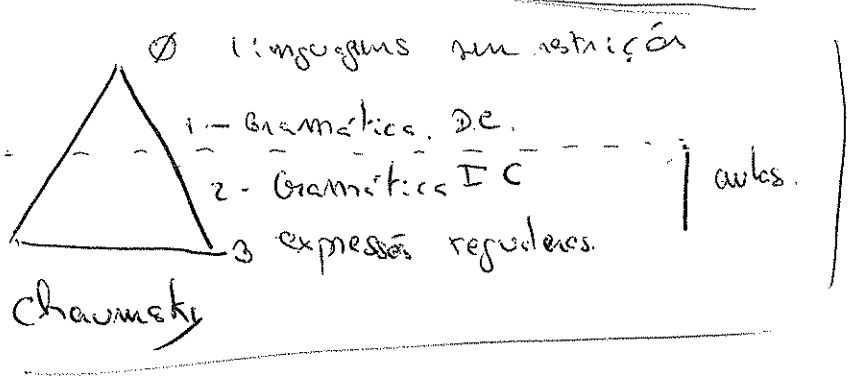 0 linguagens sem restrições
1 - Gramática D.C.
2 - Gramática I C
aulas.
3 expressões regulares.
Chaumsky